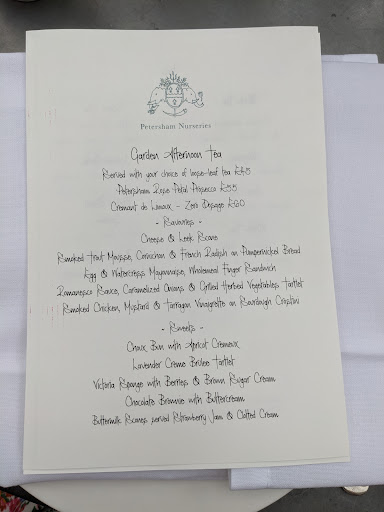 Petersham Nurseries
Garden Afternoon Tea
Served with your choice of loose-leaf tea £45
Petersham Rose Petal Prosecco £55
Cremant de Limoux - Zero Dosage £60
- Savouries -
Cheese & Leek Scone
Smoked Trout Mousse, Cornichon & French Radish on Pumpernickel Bread
Egg & Watercress Mayonnaise, Wholemeal Finger Sandwich
Romanesco Sauce, Caramelized Onions & Grilled Herbed Vegetables Tartlet
Smoked Chicken, Mustard & Tarragon Vinaigrette on Sourdough Crostini
- Sweets -
Choux Bun with Apricot Cremeux
Lavender Creme Brulee Tartlet
Victoria Sponge with Berries & Brown Sugar Cream
Chocolate Brownie with Buttercream
Buttermilk Scones served Strawberry Jam & Clotted Cream